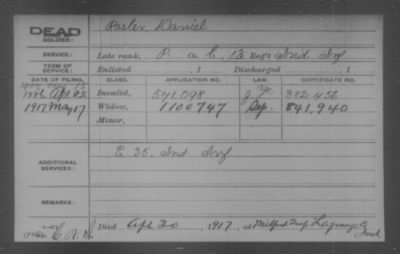 DEAD
SOLDIER: Daniel
SERVICE: Late rank, P Co. C, 13 Reg't Ind Inf
TERM OF SERVICE: Enlisted , 1 Discharged , 1
DATE OF FILING. CLASS. APPLICATION NO. LAW. CERTIFICATE NO.
1886 Apl 22 Invalid, 571,098 382,456
1917 May 17 Widow, 1100747 841,940
Minor,
ADDITIONAL SERVICES: E 35. Ind Inf
REMARKS:
Died Apl 30, 1917, at Milford Twp Lagrange Co
Ind